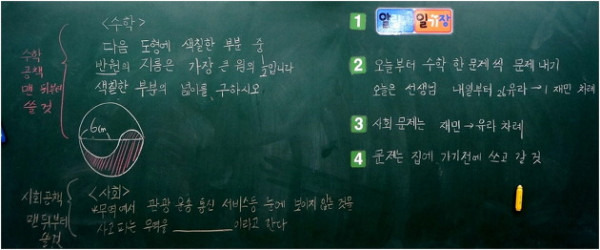 <수학>
다음 도형에 색칠한 부분 중
반원의 지름은 가장 큰 원의 1/2입니다
색칠한 부분의 넓이를 구하시오
수학
공책
맨 뒤부터
쓸 것
6cm
사회공책
맨뒤부터
쓸것
<사회>
*무역에서 관광 운송 통신 서비스등 눈에 보이지 않는 것을
사고파는 무역을 이라고 한다
1 알림 일기장
2 오늘부터 수학 한 문제씩 문제 내기
오늘은 선생님 내일부터 유라 → 1 재민 차례
3 사회 문제는 재민→유라 차례
4 문제는 집에 가기전에 쓰고 갈 것